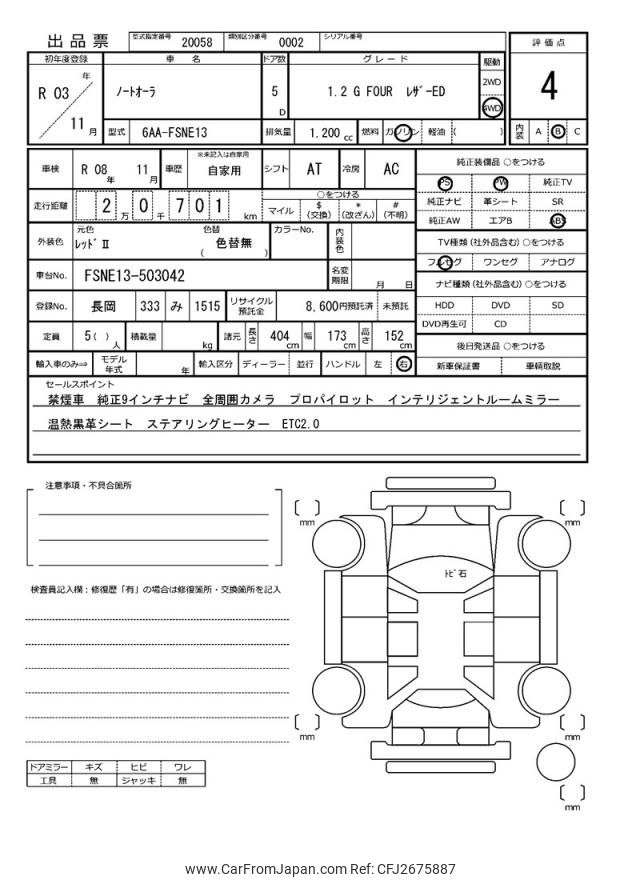 出品票 型式指定番号 20058 類別区分番号 0002 シリアル番号
評価点
4
初年度登録 車名 ドア数 グレード 駆動
R 03 年 11 月
ノートオーラ 5 D 1.2 G FOUR レザーED
2WD
4WD
型式 6AA-FSNE13 排気量 1.200 cc 燃料 ガソリン 軽油 ( )
内装 A B C
車検 R 08 年 11 月 車歴 ※未記入は自家用 自家用 シフト AT 冷房 AC
走行距離 2 万 0 千 7 0 1 km
○をつける
マイル $ (交換) * (改ざん) # (不明)
外装色 元色 レッドⅡ 色替 ( 色替無 ) カラーNo. 内装色
車台No. FSNE13-503042 名変期限 月 日
登録No. 長岡 333 み 1515 リサイクル預託金 8,600円預託済 未預託
定員 5 ( ) 人 積載量 kg 諸元 長さ 404 cm 幅 173 cm 高さ 152 cm
輸入車のみ⇨ モデル年式 年 輸入区分 ディーラー 並行 ハンドル 左 右
純正装備品 ○をつける
PS PW 純正TV
純正ナビ 革シート SR
純正AW エアB ABS
TV種類 (社外品含む) ○をつける
フルセグ ワンセグ アナログ
ナビ種類 (社外品含む) ○をつける
HDD DVD SD
DVD再生可 CD
後日発送品 ○をつける
新車保証書 車輌取説
セールスポイント
禁煙車 純正9インチナビ 全周囲カメラ プロパイロット インテリジェントルームミラー
温熱黒革シート ステアリングヒーター ETC2.0
注意事項・不具合箇所
検査員記入欄：修復歴「有」の場合は修復箇所・交換箇所を記入
ドアミラー キズ ヒビ ワレ
工具 無 ジャッキ 無
[ ] mm
[ ] mm
トビ石
[ ] mm
[ ] mm
[ ] mm
www.CarFromJapan.com Ref: CFJ2675887